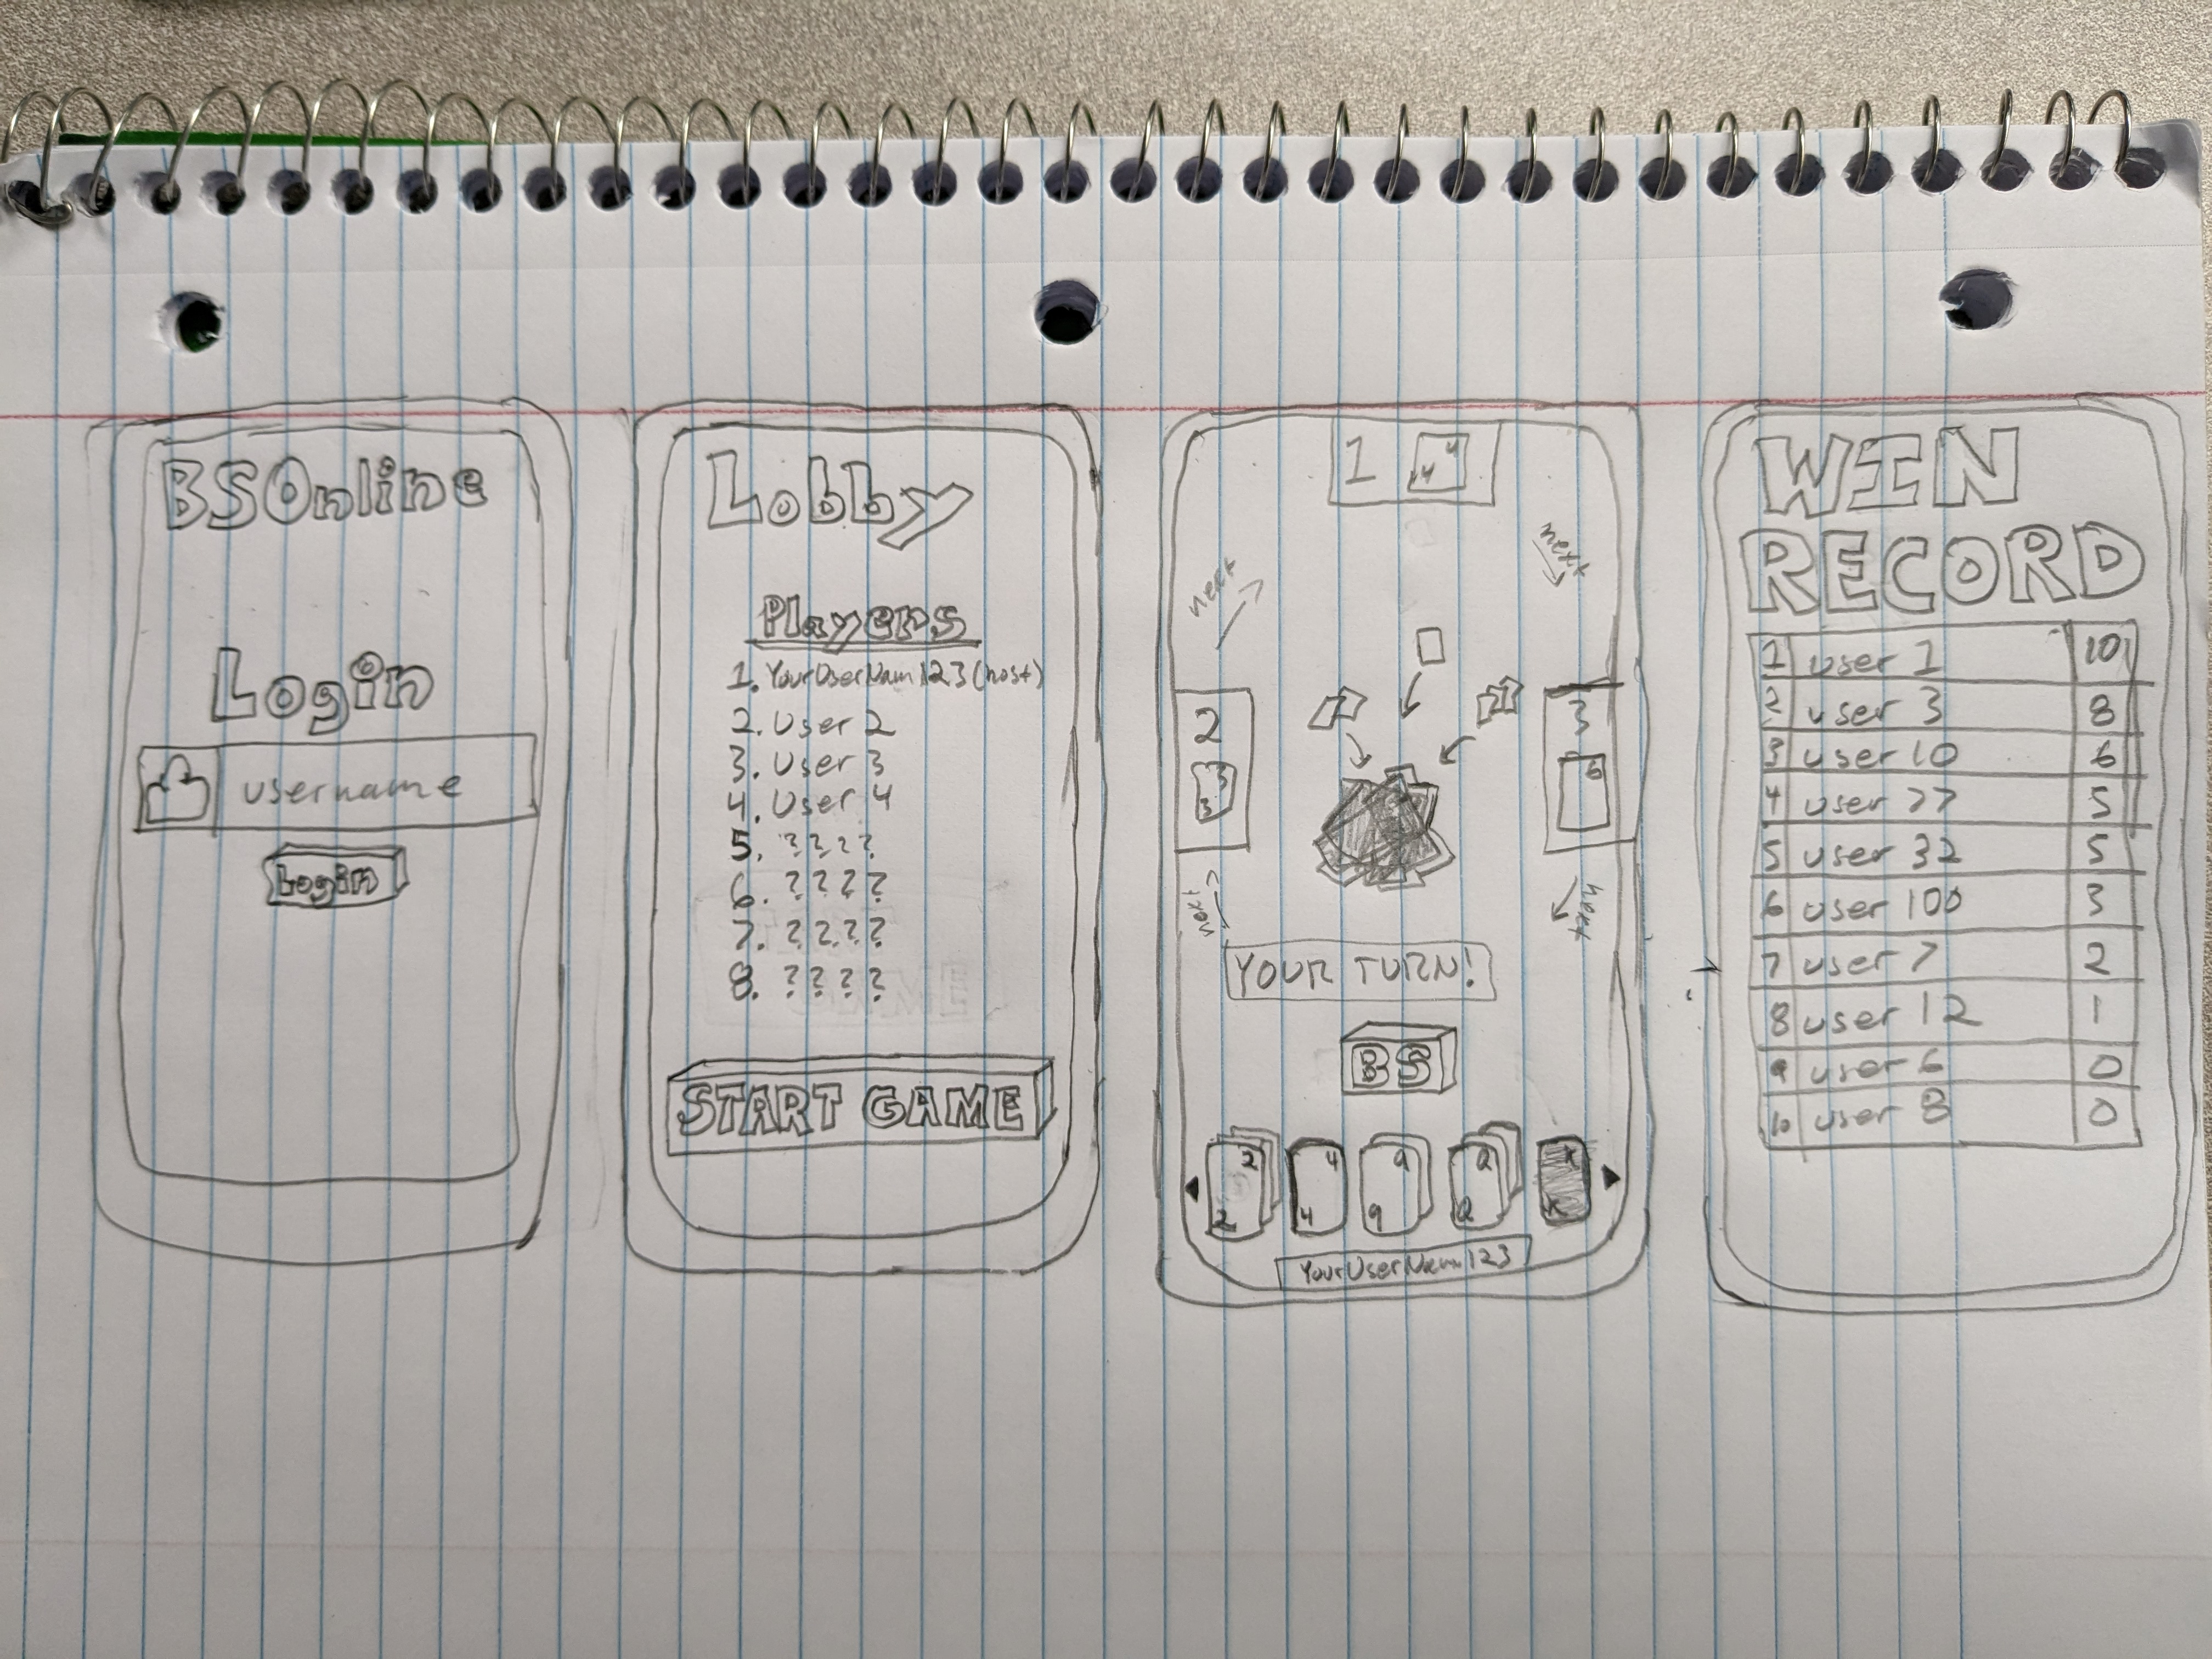 BSOnline
Login
username
Login
Lobby
Players
1. YourUserNam123 (host)
2. User 2
3. User 3
4. User 4
5. ????
6. ????
7. ????
8. ????
START GAME
1
4 4
next
next
2
3 3
3
6
next
next
YOUR TURN!
BS
2 2
4 4
9 9
Q Q
K K
YourUserNam123
WIN
RECORD
1 user 1 10
2 user 3 8
3 user 10 6
4 user 77 5
5 user 32 5
6 user 100 3
7 user 7 2
8 user 12 1
9 user 6 0
10 user 8 0